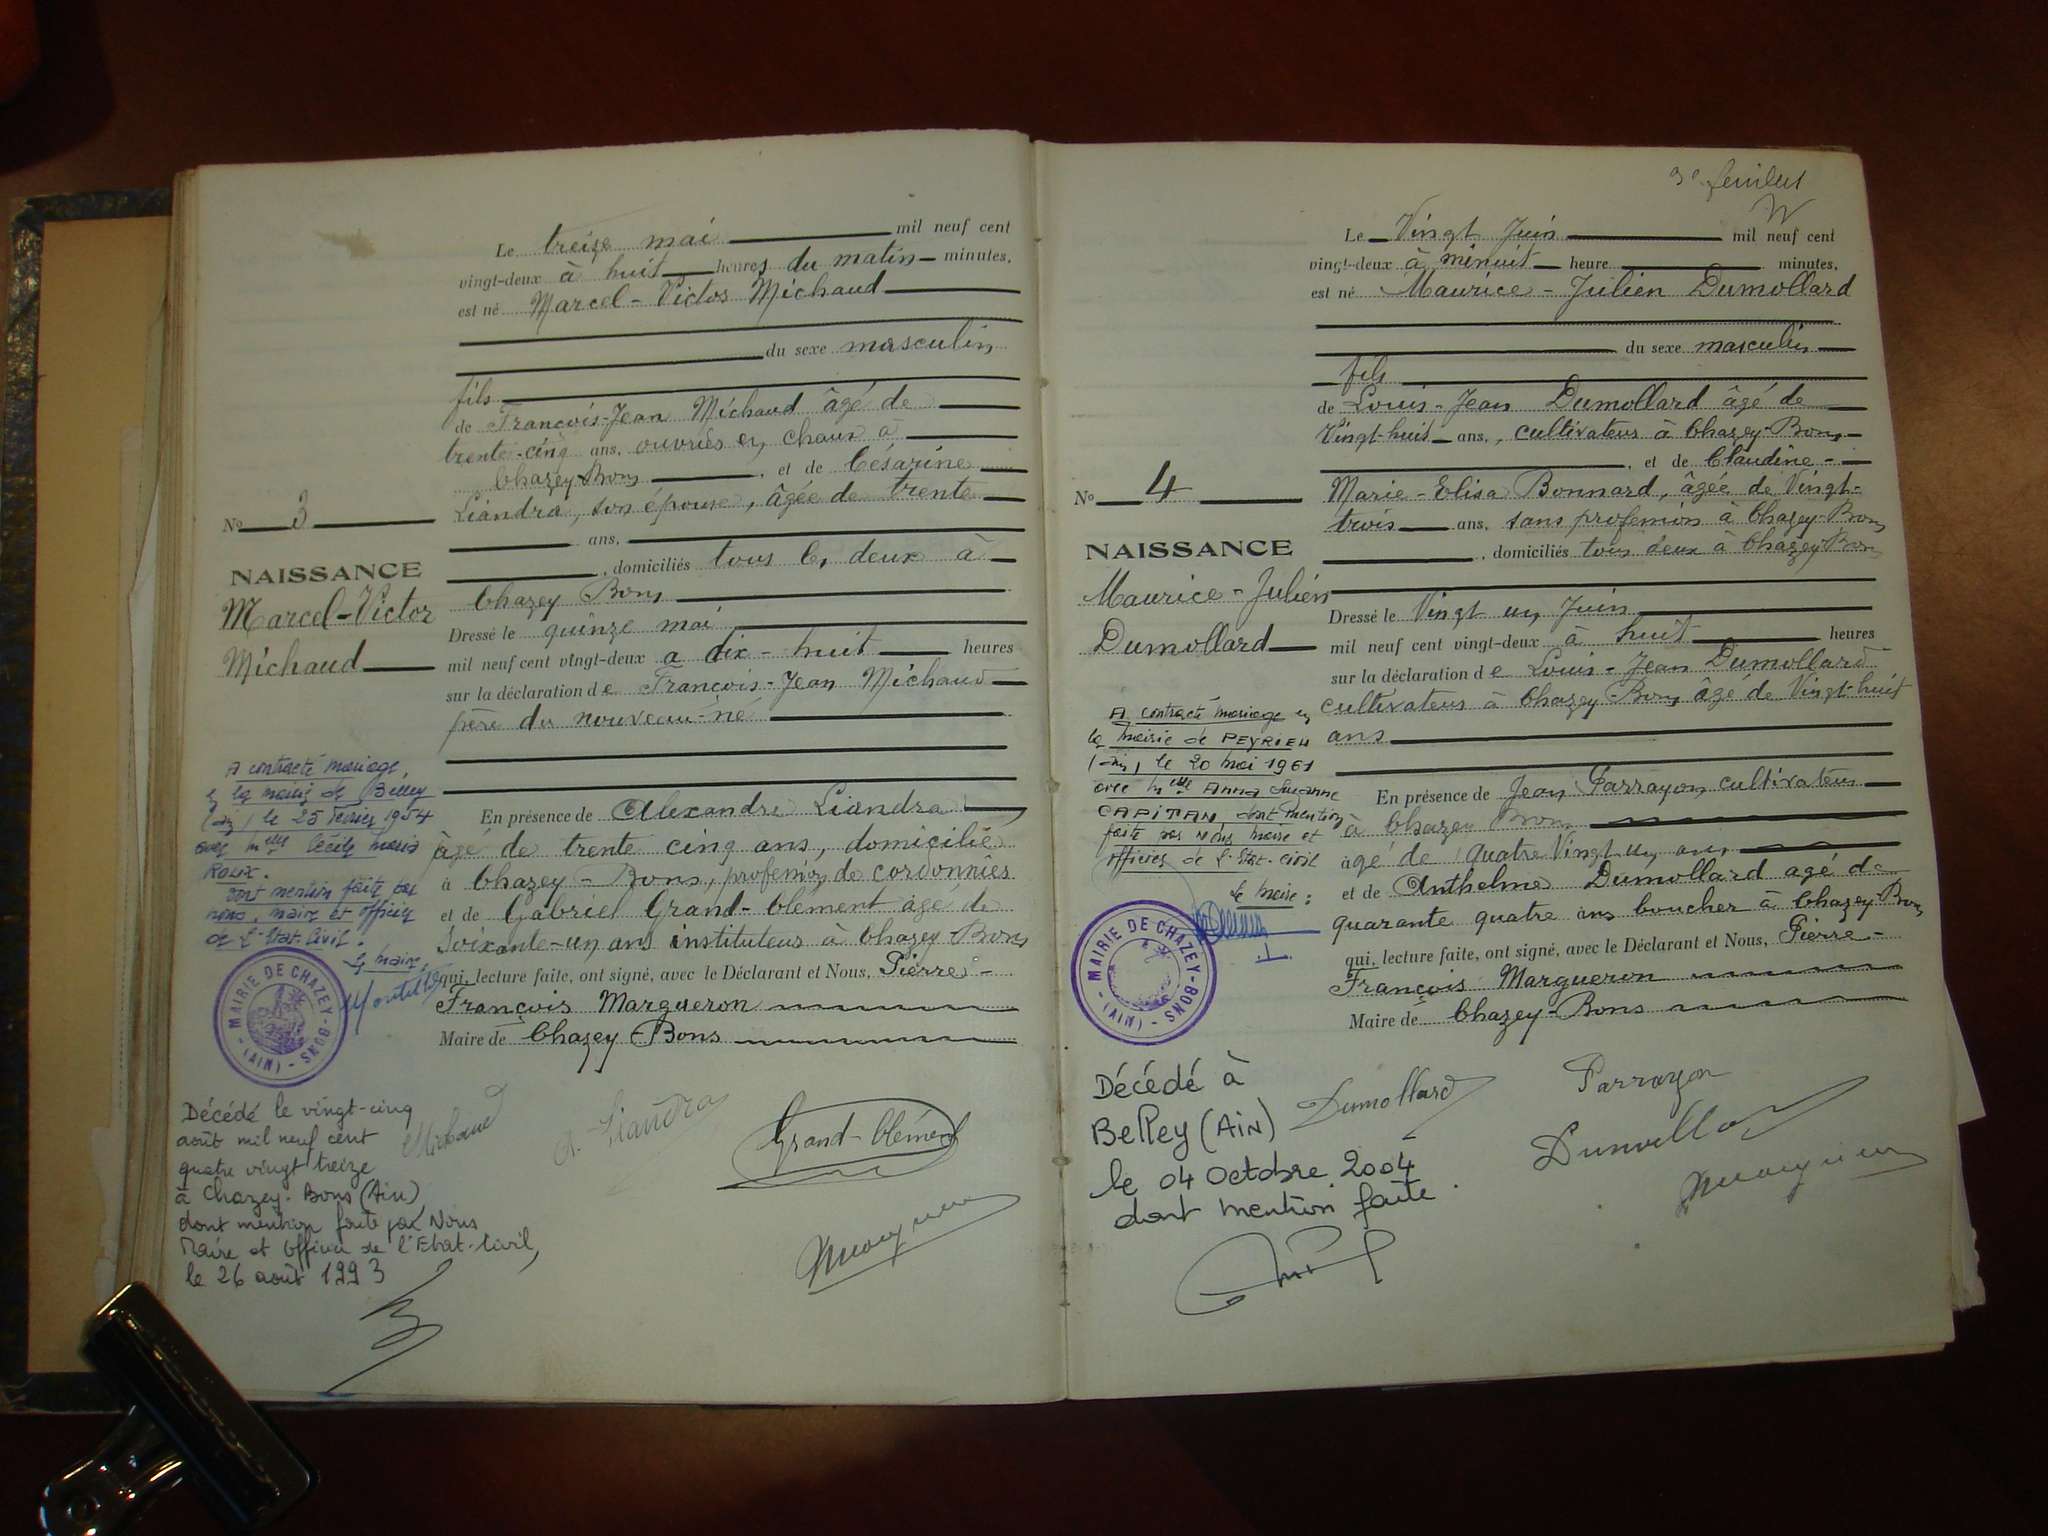 Le treize mai mil neuf cent
vingt-deux à huit heures du matin minutes,
est né Marcel-Victor Michaud
du sexe masculin
fils
de François-Jean Michaud âgé de
trente-cinq ans, ouvrier en chaux à
Chazey-Bons, et de Césarine
Liandra, son épouse, âgée de trente
ans,
, domiciliés tous les deux à
Chazey Bons
Dressé le quinze mai
mil neuf cent vingt-deux à dix-huit heures
sur la déclaration de François-Jean Michaud
père du nouveau-né
En présence de Alexandre Liandra
âgé de trente cinq ans, domicilié
à Chazey-Bons, profession de cordonnier
et de Gabriel Grand-Clément âgé de
soixante-un ans instituteur à Chazey Bons
qui, lecture faite, ont signé, avec le Déclarant et Nous, Pierre-
François Margueron
Maire de Chazey-Bons
No 3
NAISSANCE
Marcel-Victor
Michaud
A contracté mariage,
à la mairie de Belley
(Ain) le 25 février 1954
avec Melle Cécile Marie
Roux.
dont mention faite par
nous, maire et officier
de l'Etat-Civil.
Le maire,
MAIRIE DE CHAZEY-BONS
(AIN)
Décédé le vingt-cinq
août mil neuf cent
quatre vingt treize
à Chazey-Bons (Ain)
dont mention faite par Nous
Maire et Officier de l'Etat-Civil,
le 26 août 1993
Michaud
A. Liandra
Grand-Clément
Margueron
3e feuillet
Le Vingt Juin mil neuf cent
vingt-deux à minuit heure minutes,
est né Maurice-Julien Dumollard
du sexe masculin
fils
de Louis-Jean Dumollard âgé de
Vingt-huit ans, cultivateur à Chazey-Bons
, et de Claudine-
Marie-Elisa Bonnard, âgée de Vingt-
trois ans, sans profession à Chazey-Bons
, domiciliés tous deux à Chazey-Bons
Dressé le Vingt un Juin
mil neuf cent vingt-deux à huit heures
sur la déclaration de Louis-Jean Dumollard
cultivateur à Chazey-Bons âgé de Vingt-huit
ans
En présence de Jean Parrayon cultivateur
à Chazey Bons
âgé de Quatre Vingt un ans
et de Anthelme Dumollard âgé de
quarante quatre ans boucher à Chazey-Bons
qui, lecture faite, ont signé, avec le Déclarant et Nous, Pierre-
François Margueron
Maire de Chazey-Bons
No 4
NAISSANCE
Maurice-Julien
Dumollard
A contracté mariage en
la mairie de PEYRIEU
(Ain) le 20 mai 1961
avec Melle Anna Suzanne
CAPITAN, dont mention
faite par Nous maire et
officier de l'Etat-civil
Le maire:
MAIRIE DE CHAZEY-BONS
(AIN)
Décédé à
Belley (Ain)
le 04 Octobre 2004
dont mention faite.
Dumollard
Parrayon
Dumollard
Margueron